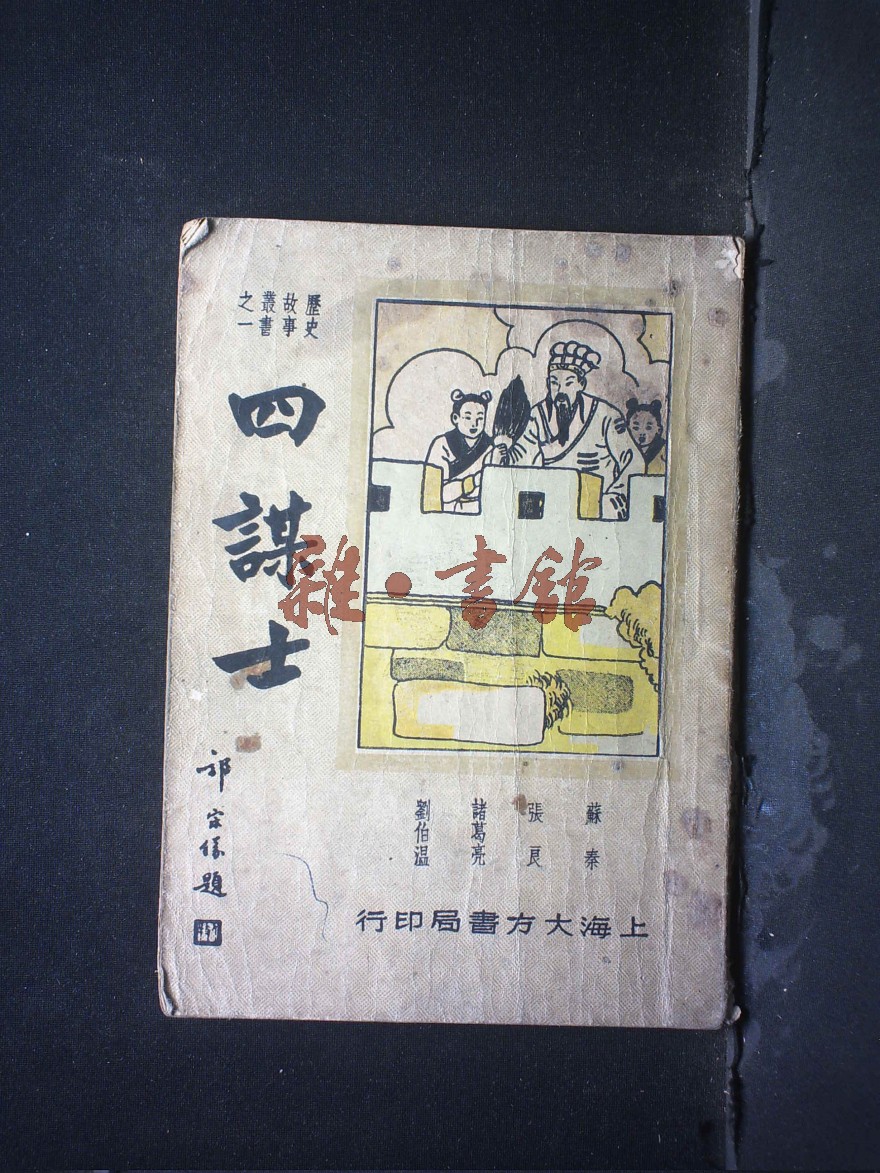 歷史
故事
叢書
之一
四謀士
題
蘇秦
張良
諸葛亮
劉伯溫
上海大方書局印行
雜·書館